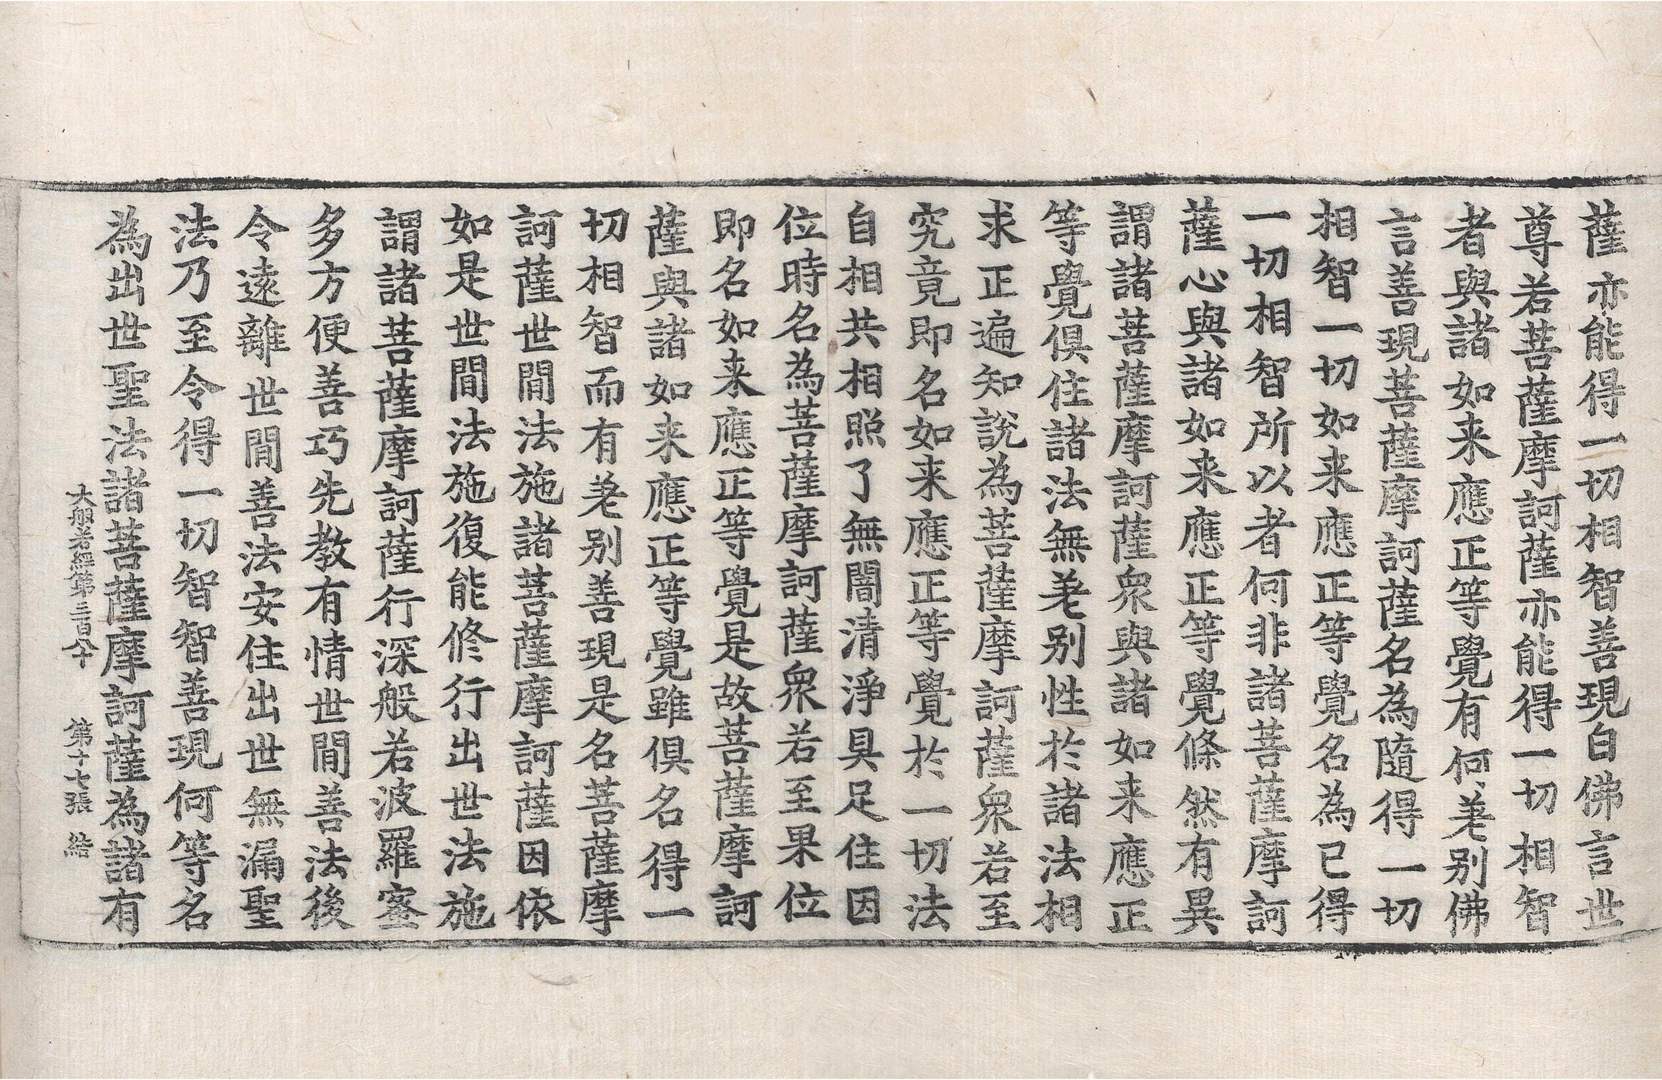 薩亦能得一切相智善現白佛言世
尊若菩薩摩訶薩亦能得一切相智
者與諸如来應正等覺有何差别佛
言善現菩薩摩訶薩名為隨得一切
相智一切如来應正等覺名為已得
一切相智所以者何非諸菩薩摩訶
薩心與諸如来應正等覺條然有異
謂諸菩薩摩訶薩衆與諸如来應正
等覺俱住諸法無差别性於諸法相
求正遍知說為菩薩摩訶薩衆若至
究竟即名如来應正等覺於一切法
自相共相照了無闇清淨具足住因
位時名為菩薩摩訶薩衆若至果位
即名如来應正等覺是故菩薩摩訶
薩與諸如来應正等覺雖俱名得一
切相智而有差别善現是名菩薩摩
訶薩世間法施諸菩薩摩訶薩因依
如是世間法施復能修行出世法施
謂諸菩薩摩訶薩行深般若波羅蜜
多方便善巧先教有情世間善法後
令遠離世間善法安住出世無漏聖
法乃至令得一切智智善現何等名
為出世聖法諸菩薩摩訶薩為諸有
大般若經第三百八十 第十七張 結